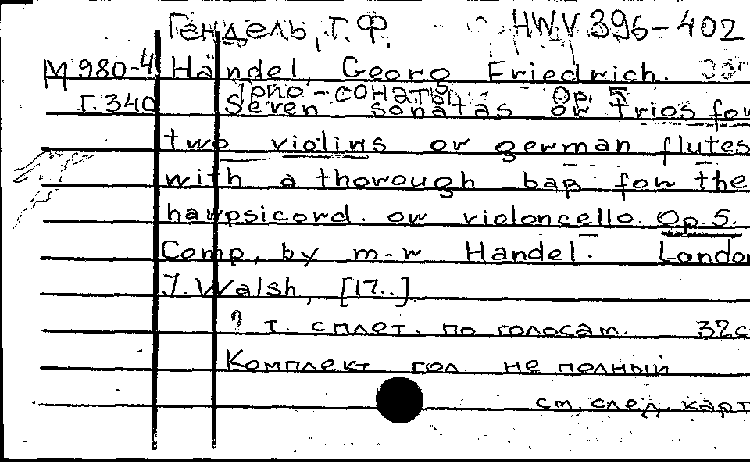 Гендель, Г. Ф. HWV 396-402
М 980-4 Händel, Georg Friedrich.
Трио-сонаты Op. 5
Г. 340 Seven sonatas or trios for
two violins or german flutes
with a thorough bap for the
harpsicord. or violoncello. Op. 5.
Comp. by m-r Handel. Londo
J. Walsh, [17..]
? т. сплет. по голосам. 32с
Комплект гол не полный
см. след. карт